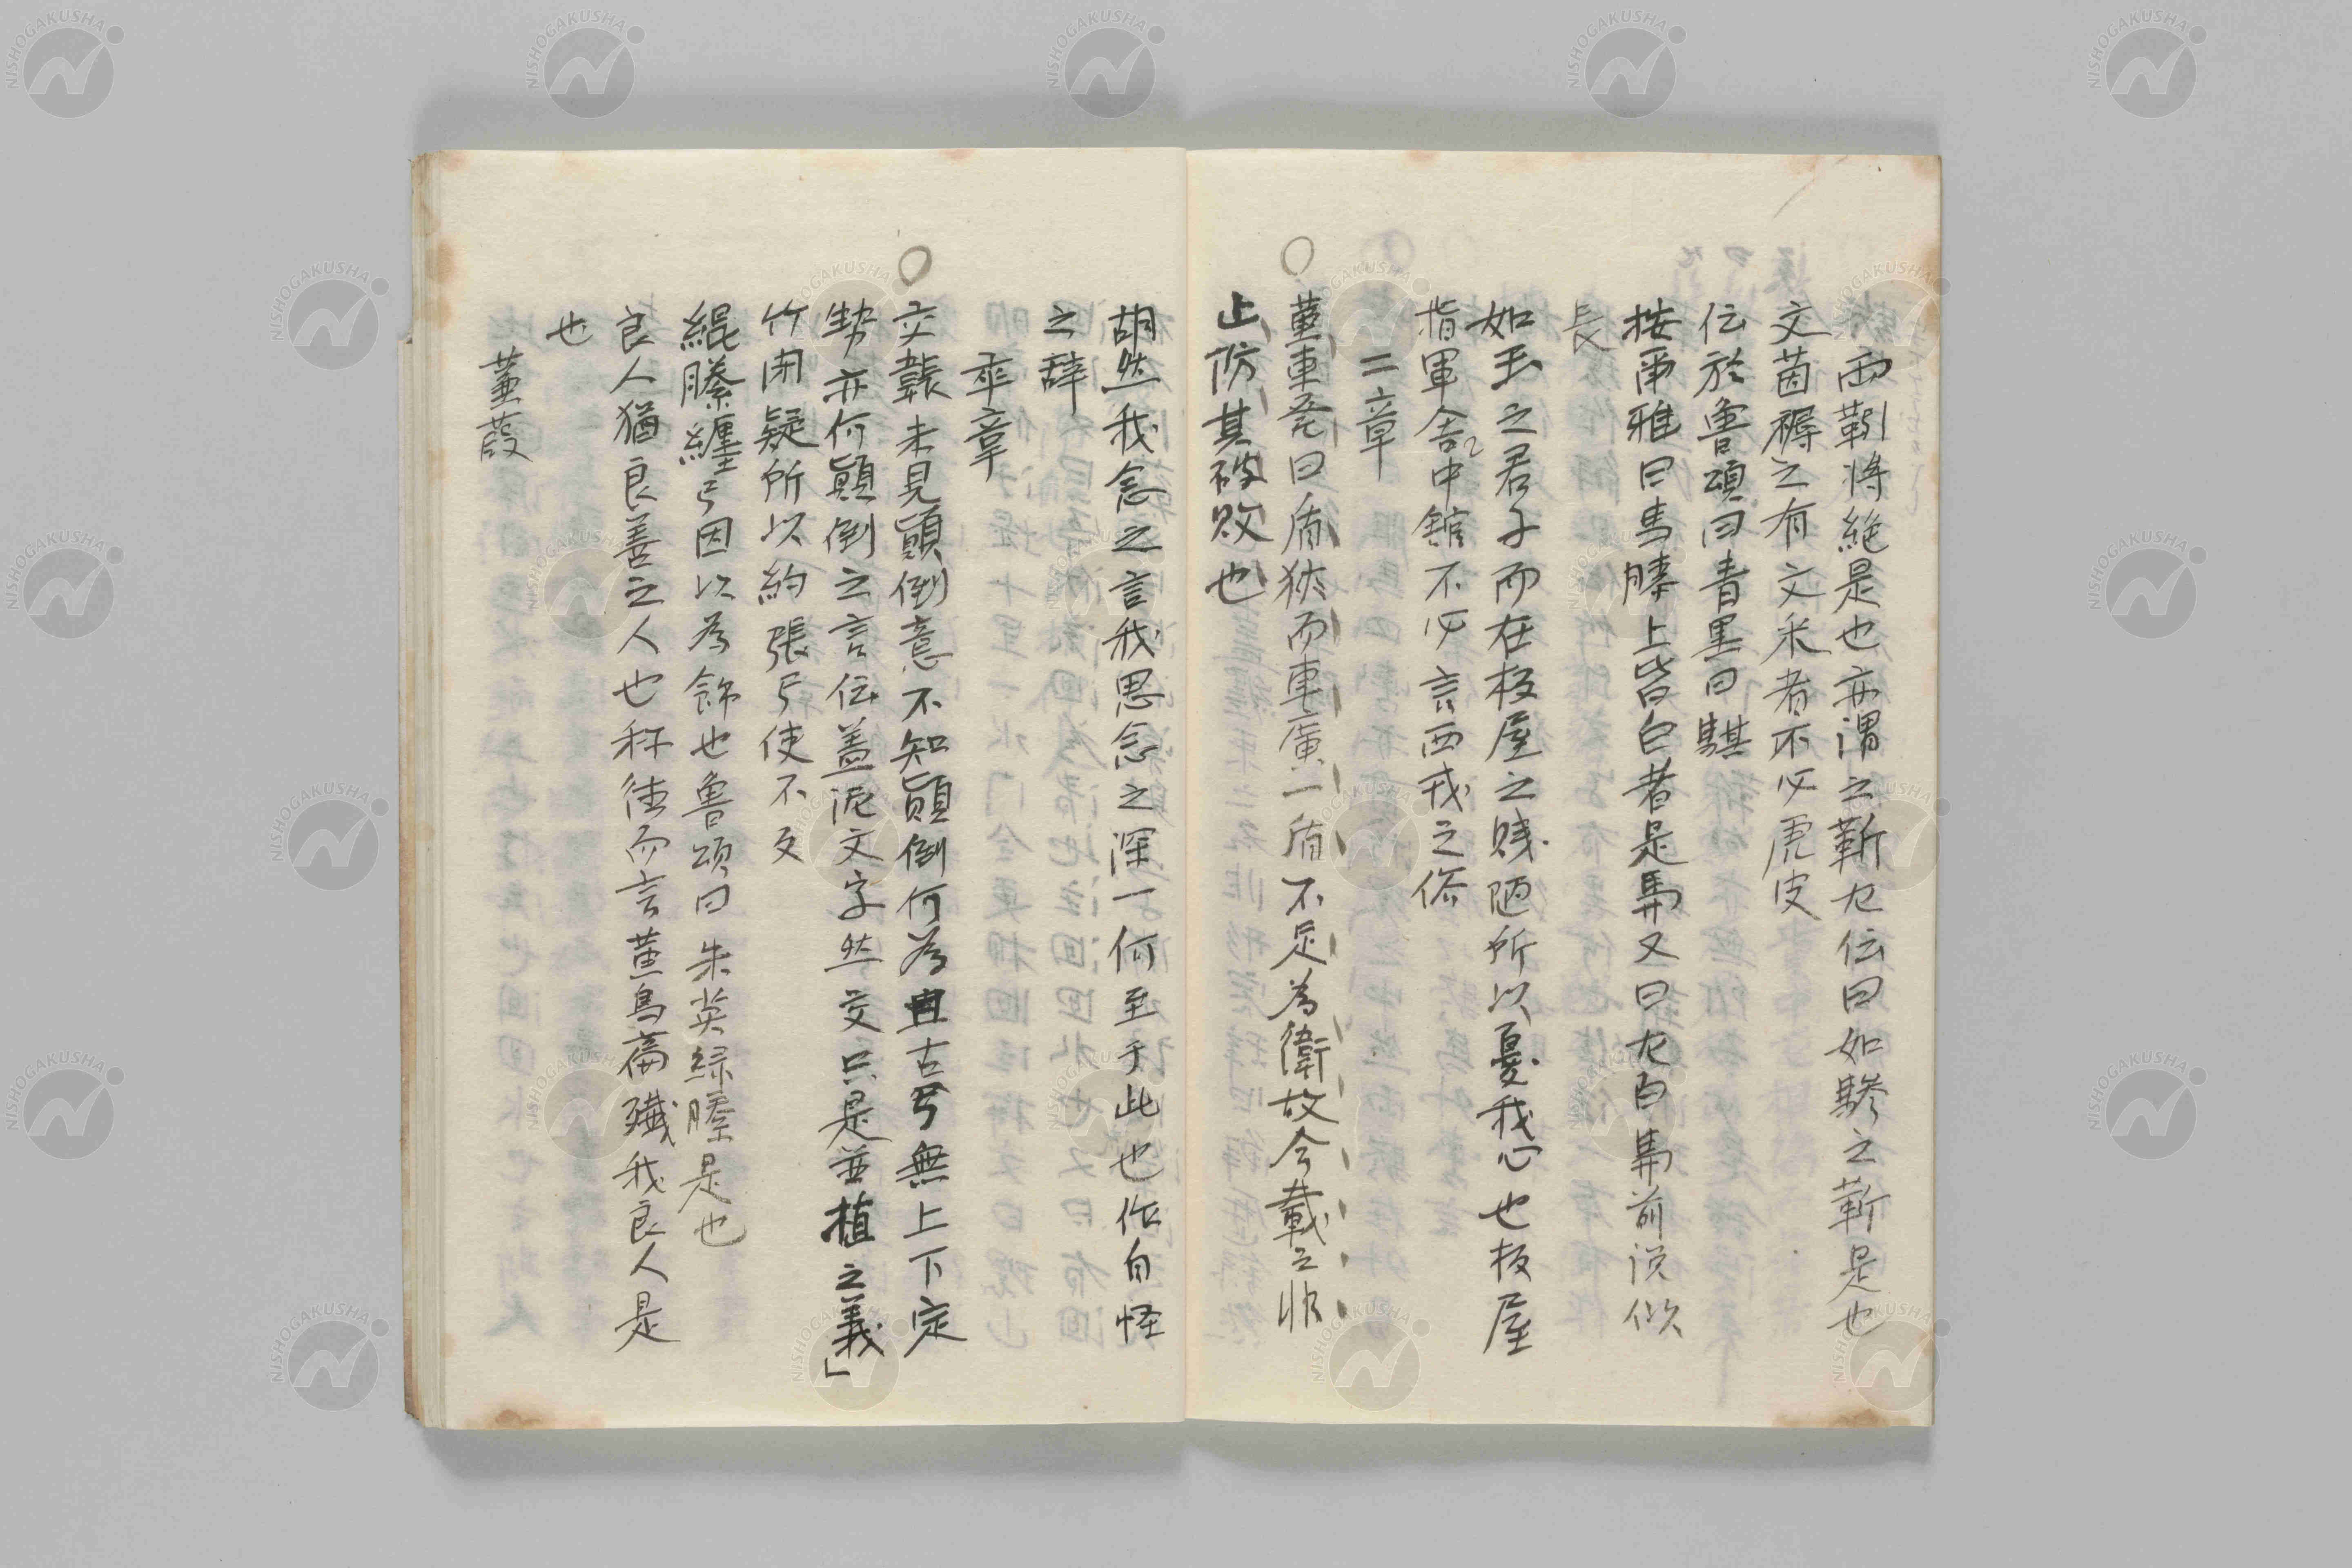 両靷将絶是也亦謂之靳左伝曰如驂之靳是也
文茵褥之有文采者不必虎皮
伝於魯頌曰青黒曰騏
按爾雅曰馬膝上皆白者是馵又曰左白馵前説似
長
如玉之君子而在板屋之賤陋所以憂我心也板屋
指軍舎中舘不必言西戎之俗
二章
董車菴曰盾狭而車廣一盾不足為衛故今載之非
止防其破敗也
胡然我念之言我思念之深一何至于此也作自怪
之辞
卒章
交韔未見顛倒意不知顛倒何為且古弓無上下定
勢亦何顛倒之言伝盖泥文字然交只是並植之義」
竹閉疑所以約張弓使不反
緄縢纏弓因以為飾也魯頌曰朱英緑縢是也
良人猶良善之人也称徳而言黄鳥篇殲我良人是
也
蒹葭